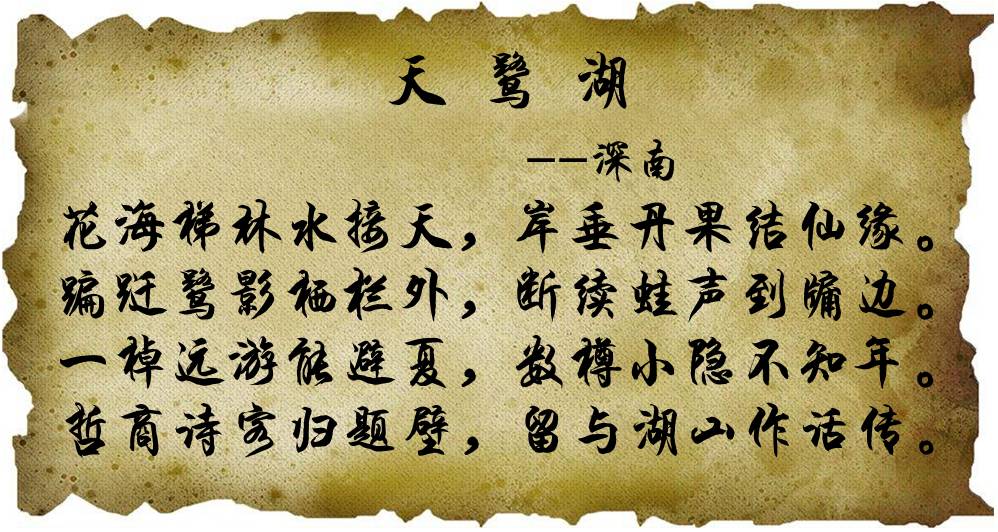 天鹭湖
--深南
花海梯林水接天，岸垂丹果结仙缘。
蹁跹鹭影栖栏外，断续蛙声到牖边。
一棹远游能避夏，数樽小隐不知年。
哲商诗客归题壁，留与湖山作话传。